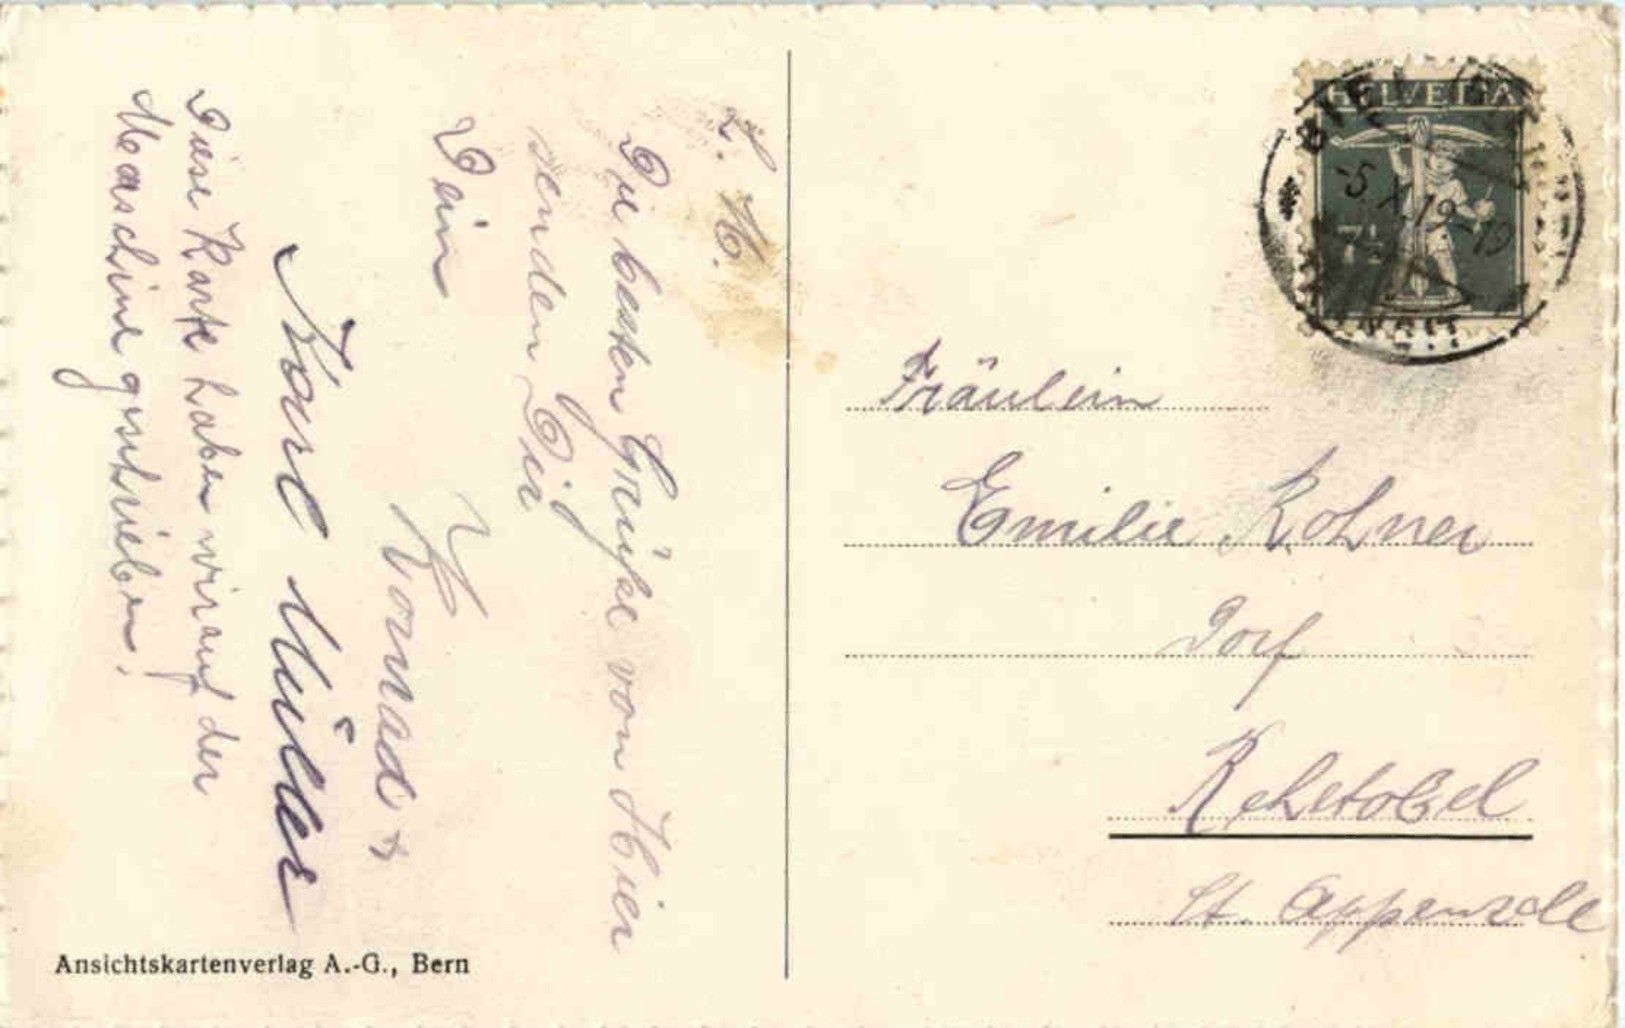 L. H.
Die besten Grüsse von Hier
senden Dir
Dein
Konrad &
Karl Müller
Diese Karte haben wir auf der
Maschine geschrieben.
Ansichtskartenverlag A.-G., Bern
HELVETIA
7½
BIEL
-5.X.19-19
Fräulein
Emilie Rohner
Dorf
Rehetobel
Appenzell